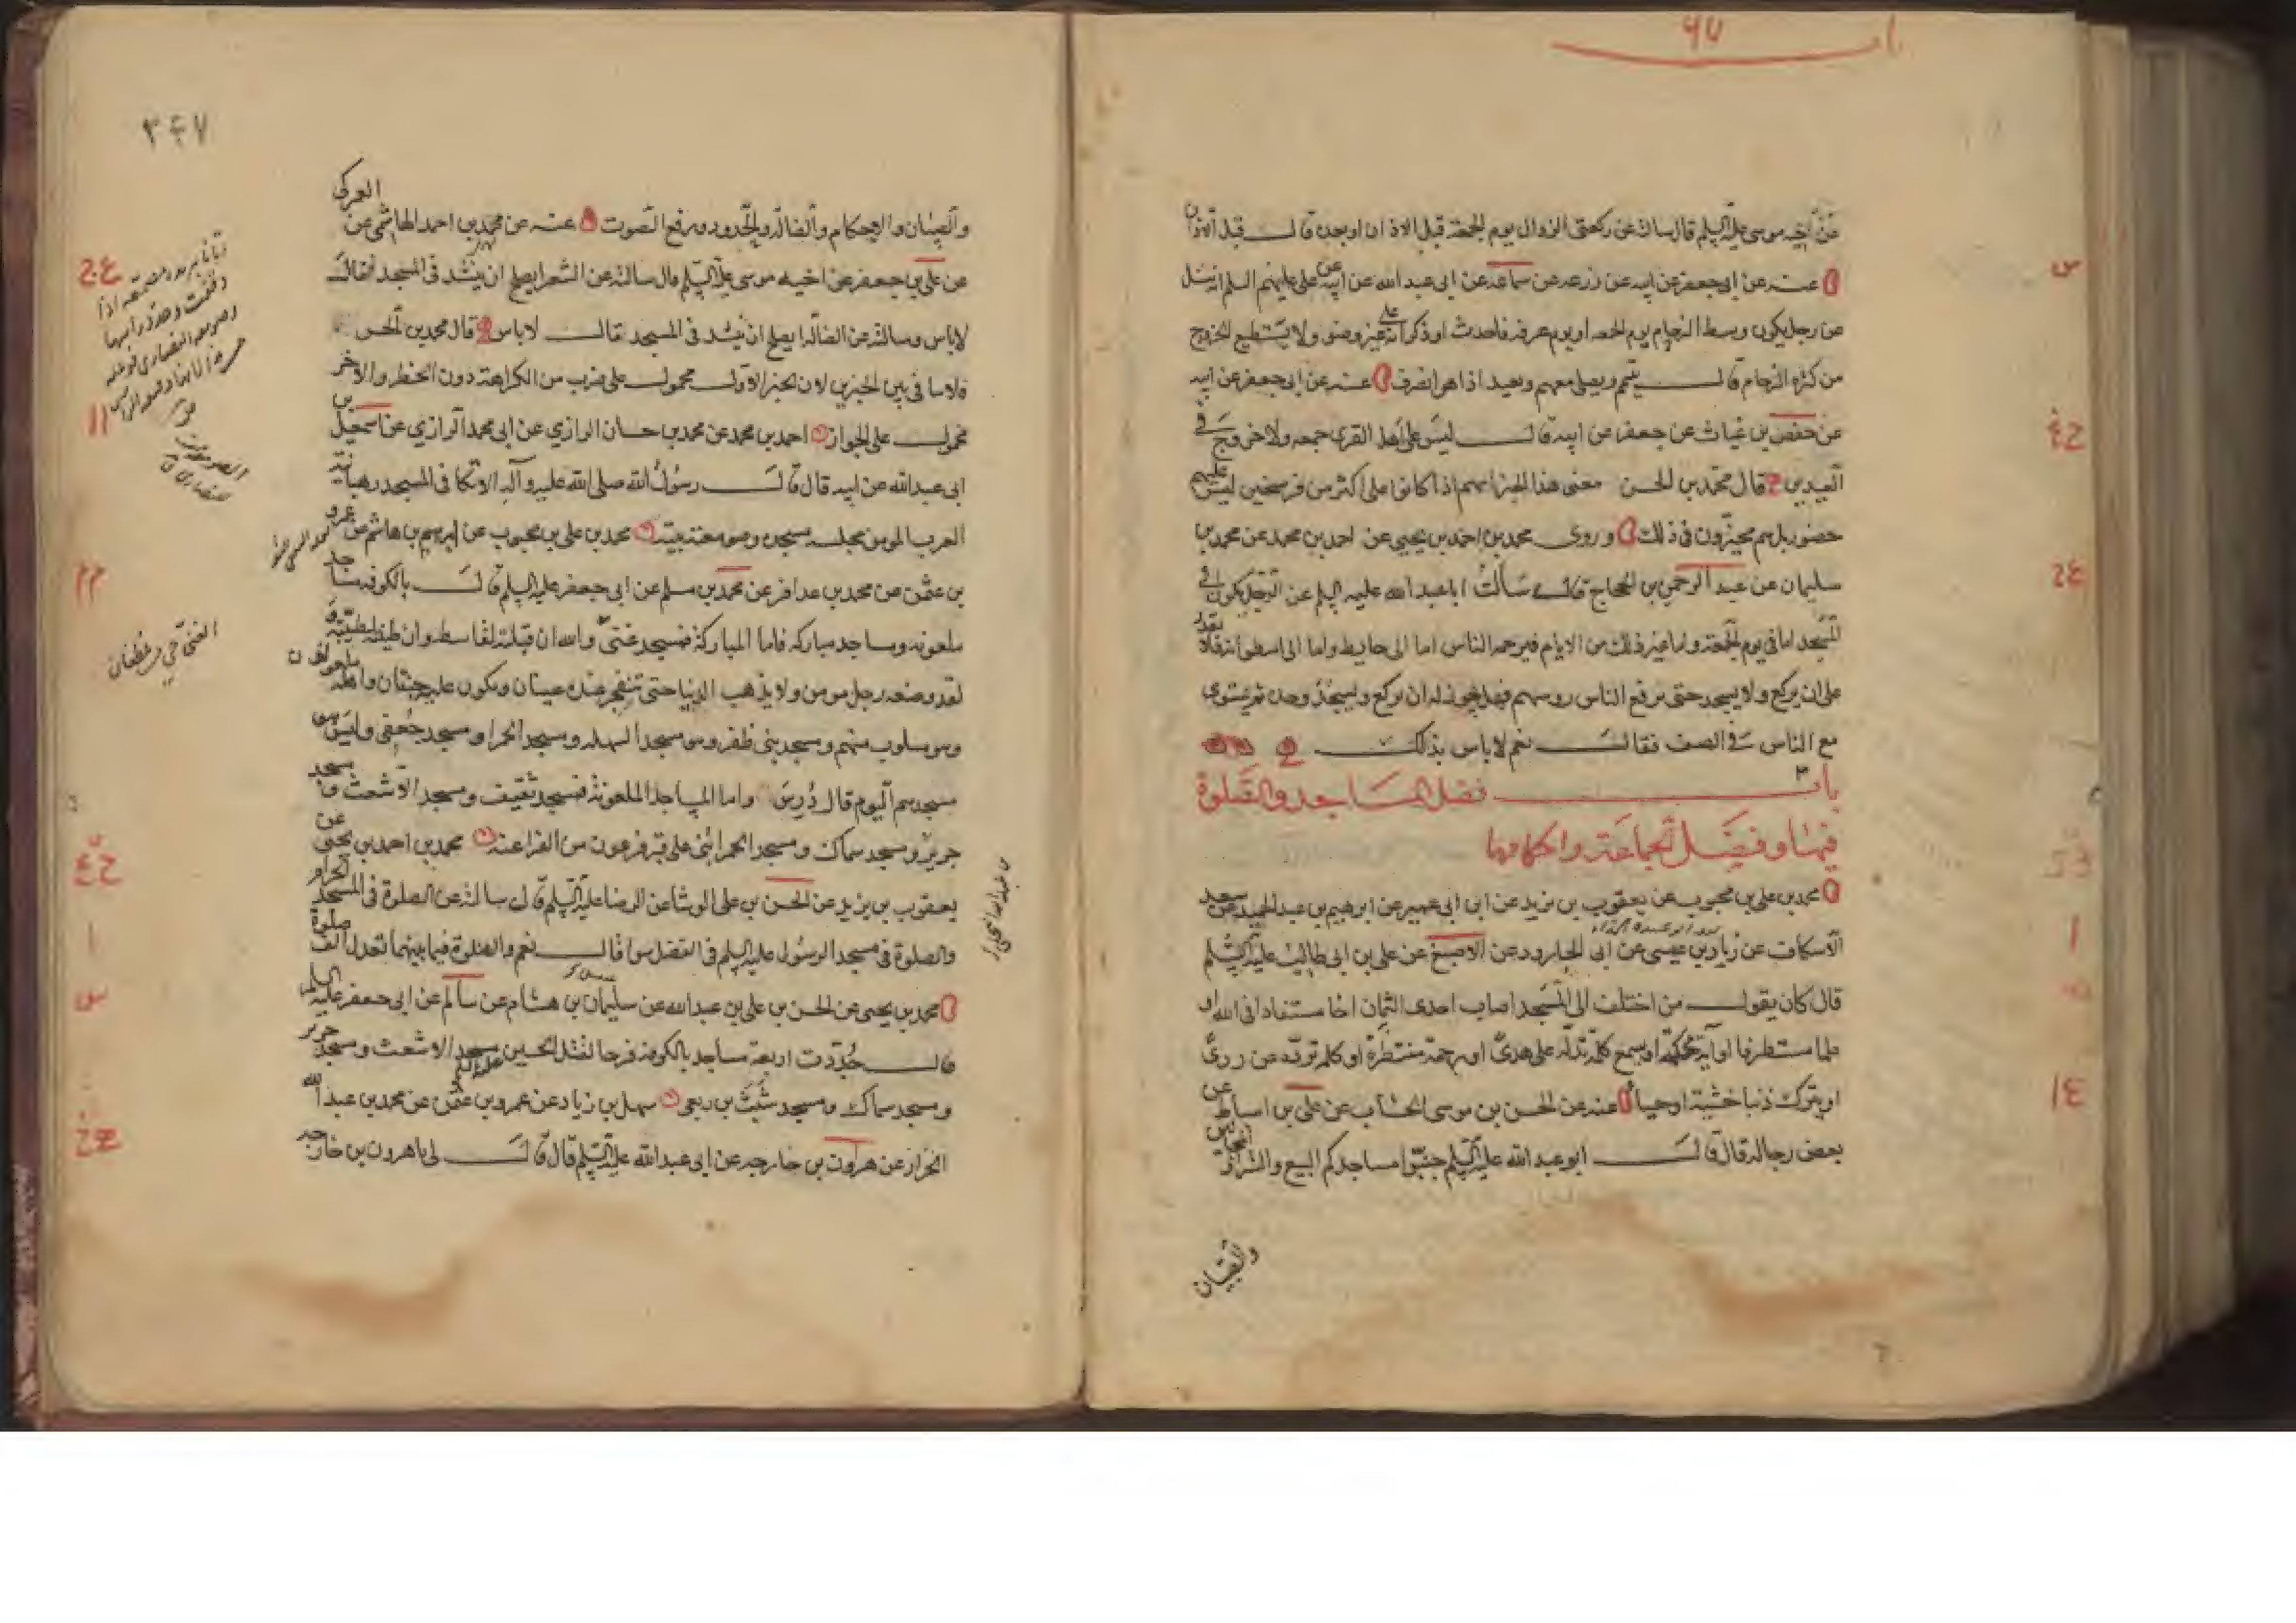 عن اخيه موسى عليه السلم قال سالته عن ركعتى الزوال يوم الجمعة قبل الاذان او بعده قال قبل الاذان
عنه عن ابى جعفر عن ابيه عن زرعه عن سماعه عن ابى عبد الله عن ابيه عن على عليهم السلم انه سئل
عن رجل يكون وسط الزحام يوم الجمعه او يوم عرفه فاحدث او ذكر انه على غير وضو ولا يستطيع الخروج
من كثره الزحام قال يتيمم ويصلى معهم ويعيد اذا هو انصرف عنه عن ابى جعفر عن ابيه
عن حفص بن غياث عن جعفر عن ابيه قال ليس على اهل القرى جمعه ولا خروج فى
العيدين قال محمد بن الحسن معنى هذا الخبر انهم اذا كانوا على اكثر من فرسخين ليس عليهم
حضور بل هم مخيرون فى ذلك وروى محمد بن احمد بن يحيى عن احمد بن محمد عن محمد بن
سليمان عن عبد الرحمن بن الحجاج قال سالت ابا عبد الله عليه السلم عن الرجل يكون فى
المسجد اما فى يوم الجمعة واما غير ذلك من الايام فيزحمه الناس اما الى حايط واما الى اسطوانة فلا يقدر
على ان يركع ولا يسجد حتى يرفع الناس روسهم فهل يجوز له ان يركع ويسجد وحده ثم يستوى
مع الناس فى الصف فقال نعم لا باس بذلك
باب فضل المساجد والصلوة
فيها وفضل الجماعة واحكامها
محمد بن على بن محبوب عن يعقوب بن يزيد عن ابن ابى عمير عن ابرهيم بن عبد الحميد عن سعد
الاسكاف عن زياد بن عيسى عن ابى الجارود عن الاصبغ عن على بن ابى طالب عليه السلم
قال كان يقول من اختلف الى المسجد اصاب احدى الثمان اخا مستفادا فى الله او
علما مستطرفا او آية محكمة او يسمع كلمة تدله على هدى او رحمة منتظرة او كلمه تردّه عن ردىّ
او يترك ذنبا خشية او حياء عنه عن الحسن بن موسى الخشاب عن على بن اسباط عن
بعض رجاله قال قال ابو عبد الله عليه السلم جنبوا مساجدكم البيع والشرا والمجانين
والصبيان
٣٤٧
والصبيان والاحكام والضالة والحدود ورفع الصوت عنه عن محمد بن احمد الهاشمى عن العمركى
عن على بن جعفر عن اخيه موسى عليه السلم قال سالته عن الشعر ايصلح ان ينشد فى المسجد فقال
لا باس وسالته عن الضالة ايصلح ان تنشد فى المسجد قال لا باس قال محمد بن الحسن
فلا تنافى بين الخبرين لان الخبر الاول محمول على ضرب من الكراهة دون الحظر والاخر
محمول على الجواز احمد بن محمد عن محمد بن حسان الرازي عن ابى محمد الرازي عن اسمعيل بن
ابى عبد الله عن ابيه قال قال رسول الله صلى الله عليه وآله الاتكا فى المسجد رهبانية
العرب المومن مجلسه مسجده وصومعته بيته محمد بن على بن محبوب عن ابرهيم بن هاشم عن عمرو
بن عثمن عن محمد بن عذافر عن محمد بن مسلم عن ابى جعفر عليه السلم قال بالكوفه مساجد
ملعونه ومساجد مباركه فاما المباركة فمسجد غنى والله ان قبلته لقاسطه وان طينته لطيبة
لقد وضعه رجل مومن ولا يذهب الدنيا حتى تنفجر عنده عينان ويكون عليه جنتان واهله ملعونون
وهو مسلوب منهم ومسجد بنى ظفر وهو مسجد السهله ومسجد الحمرا ومسجد جعفى وليس هو
مسجدهم اليوم قال دُرِسَ واما المساجد الملعونة فمسجد ثقيف ومسجد الاشعث ومسجد
جرير ومسجد سماك ومسجد الحمرا بنى على قبر فرعون من الفراعنه محمد بن احمد بن يحيى عن
يعقوب بن يزيد عن الحسن بن على الوشا عن الرضا عليه السلم قال سالته عن الصلوة فى المسجد الحرام
والصلوة فى مسجد الرسول عليه السلم فى الفضل سوا قال نعم والصلوة فيما بينهما تعدل الف صلوة
محمد بن يحيى عن الحسن بن على بن عبد الله عن سليمان بن هشام عن سالم عن ابى جعفر عليه السلم
قال جُدّدت اربعة مساجد بالكوفه فرحا لقتل الحسين عليه السلم مسجد الاشعث ومسجد جرير
ومسجد سماك ومسجد شبث بن ربعى سهل بن زياد عن عمرو بن عثمن عن محمد بن عبد الله
الخزاز عن هرون بن خارجه عن ابى عبد الله عليه السلم قال قال لى يا هرون بن خارجه